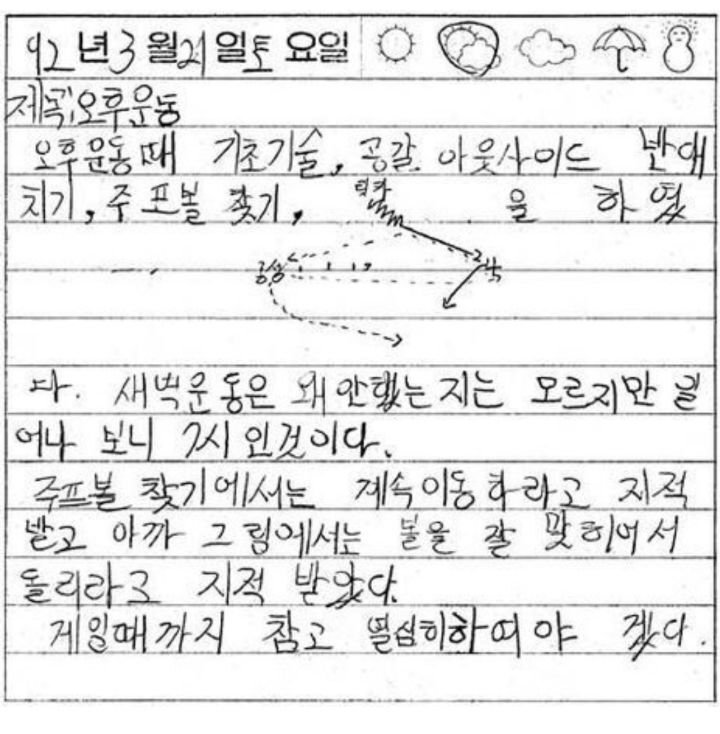 92년3월21일토요일
제목;오후운동
오후운동때 기초기술, 공갈. 아웃사이드 반대
치기, 주 포볼 찾기, 을 하였
지성
다. 새벽운동은 왜 안했는지는 모르지만 일
어나 보니 7시 인것이다.
주프볼 찾기에서는 계속이동하라고 지적
받고 아까 그림에서는 볼을 잘 맞히어서
돌리라고 지적 받았다.
게임때까지 참고 열심히하여야 겠다.